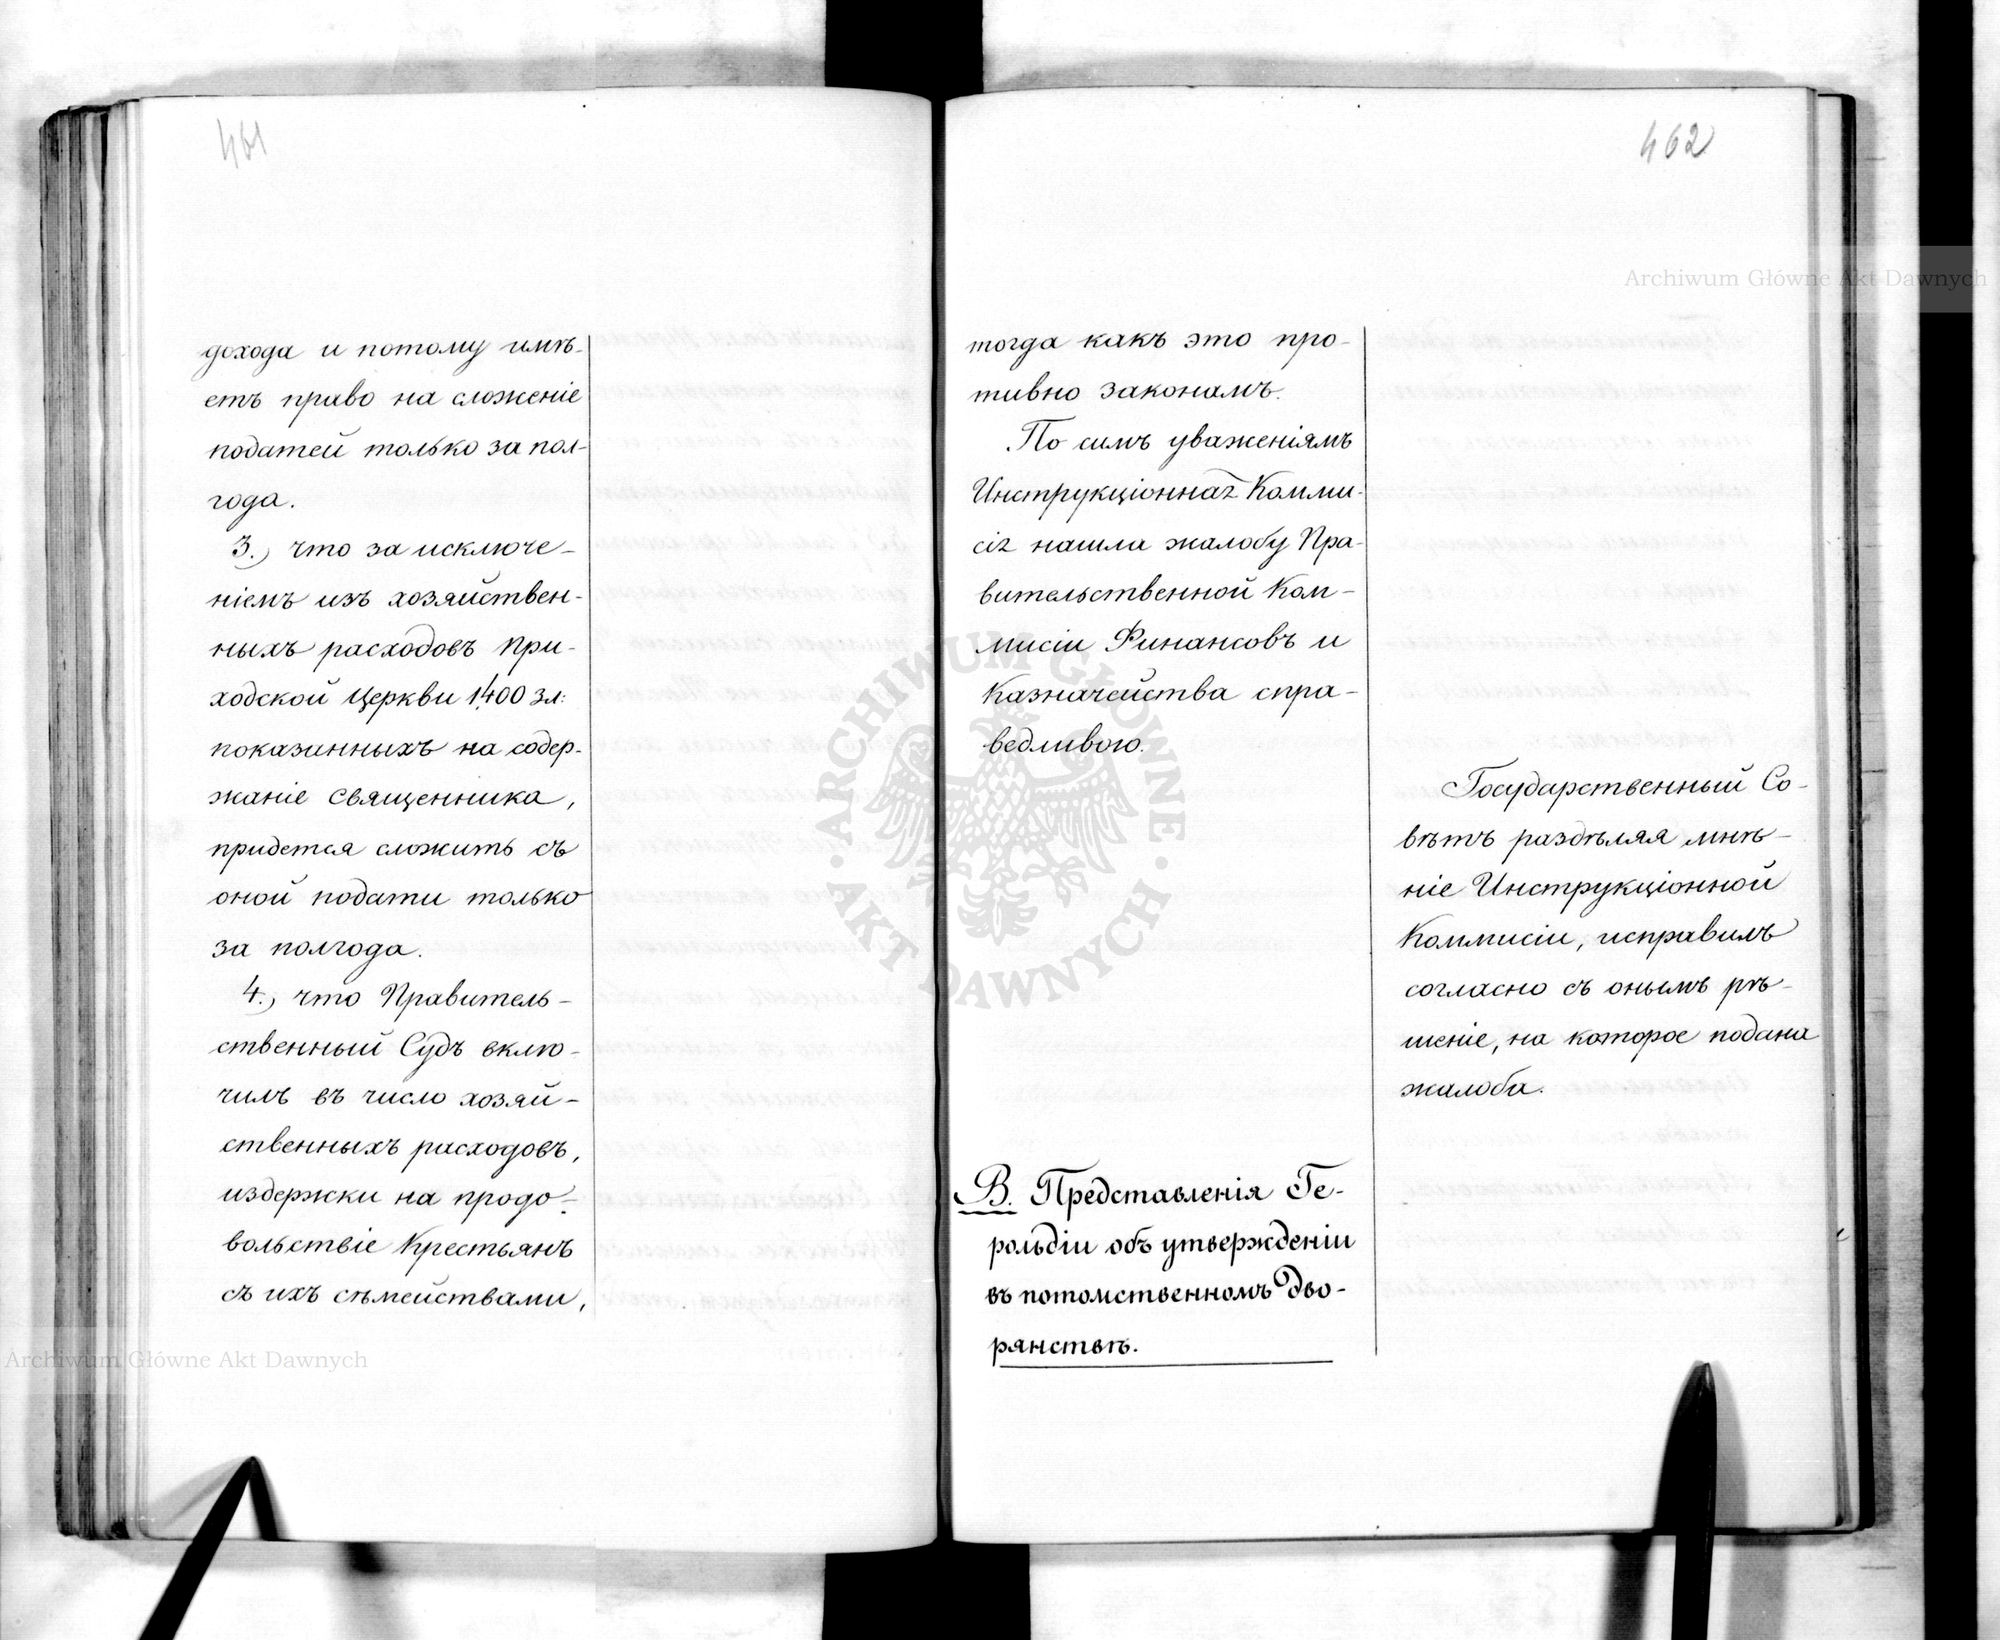 461
дохода и потому имѣ-
етъ право на сложеніе
податей только за пол-
года.
3., что за исключе-
ніемъ изъ хозяйствен-
ныхъ расходовъ При-
ходской Церкви 1,400 зл:
показанныхъ на содер-
жаніе Священника,
придется сложить съ
оной подати только
за полгода.
4., что Правитель-
ственный Судъ вклю-
чилъ въ число хозяй-
ственныхъ расходовъ,
издержки на продо-
вольствіе Крестьянъ
съ ихъ сѣмействами,
462
тогда какъ это про-
тивно законамъ.
По симъ уваженіямъ
Инструкціонная Комми-
сія нашла жалобу Пра-
вительственной Ком-
мисіи Финансовъ и
Казначейства спра-
ведливою.
Государственный Со-
вѣтъ раздѣляя мнѣ-
ніе Инструкціонной
Коммисіи, исправилъ
согласно съ онымъ рѣ-
шеніе, на которое подана
жалоба.
В. Представленія Ге-
рольдіи объ утвержденіи
въ потомственномъ Дво-
рянствѣ.
Archiwum Główne Akt Dawnych
ARCHIWUM GŁÓWNE · AKT DAWNYCH ·
Archiwum Główne Akt Dawnych